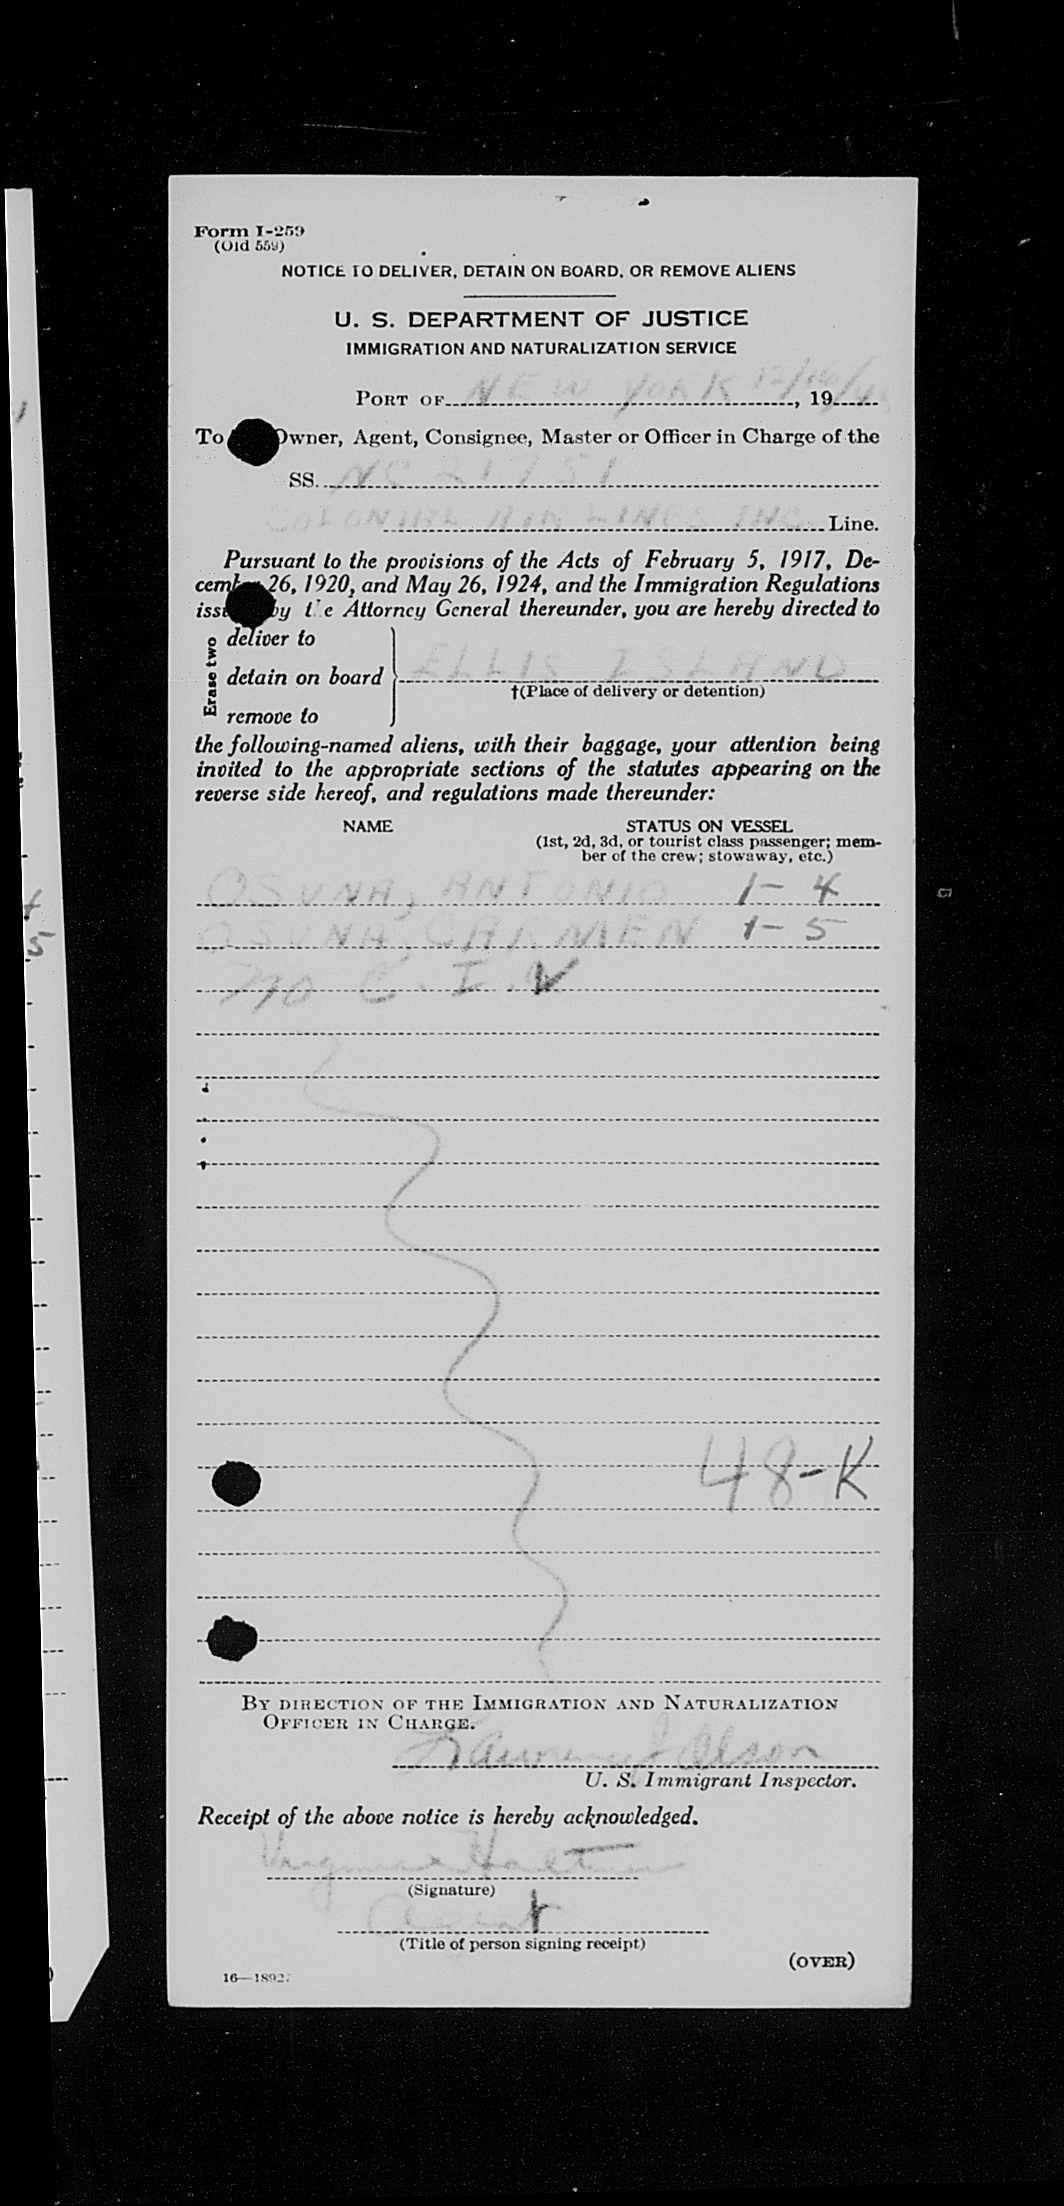 Form I-259
(Old 559)
NOTICE TO DELIVER, DETAIN ON BOARD, OR REMOVE ALIENS
U. S. DEPARTMENT OF JUSTICE
IMMIGRATION AND NATURALIZATION SERVICE
PORT OF NEW YORK 12/16/4 , 19
To Owner, Agent, Consignee, Master or Officer in Charge of the
SS. NC 21751
COLONIAL AIR LINES INC Line.
Pursuant to the provisions of the Acts of February 5, 1917, De-
cember 26, 1920, and May 26, 1924, and the Immigration Regulations
issued by the Attorney General thereunder, you are hereby directed to
Erase two
deliver to
detain on board ELLIS ISLAND
†(Place of delivery or detention)
remove to
the following-named aliens, with their baggage, your attention being
invited to the appropriate sections of the statutes appearing on the
reverse side hereof, and regulations made thereunder:
NAME STATUS ON VESSEL
(1st, 2d, 3d, or tourist class passenger; mem-
ber of the crew; stowaway, etc.)
OSUNA, ANTONIO 1-4
OSUNA, CARMEN 1-5
no C. I. V
48-K
BY DIRECTION OF THE IMMIGRATION AND NATURALIZATION
OFFICER IN CHARGE.
Olson
U. S. Immigrant Inspector.
Receipt of the above notice is hereby acknowledged.
(Signature)
Agent
(Title of person signing receipt)
(OVER)
16—18927